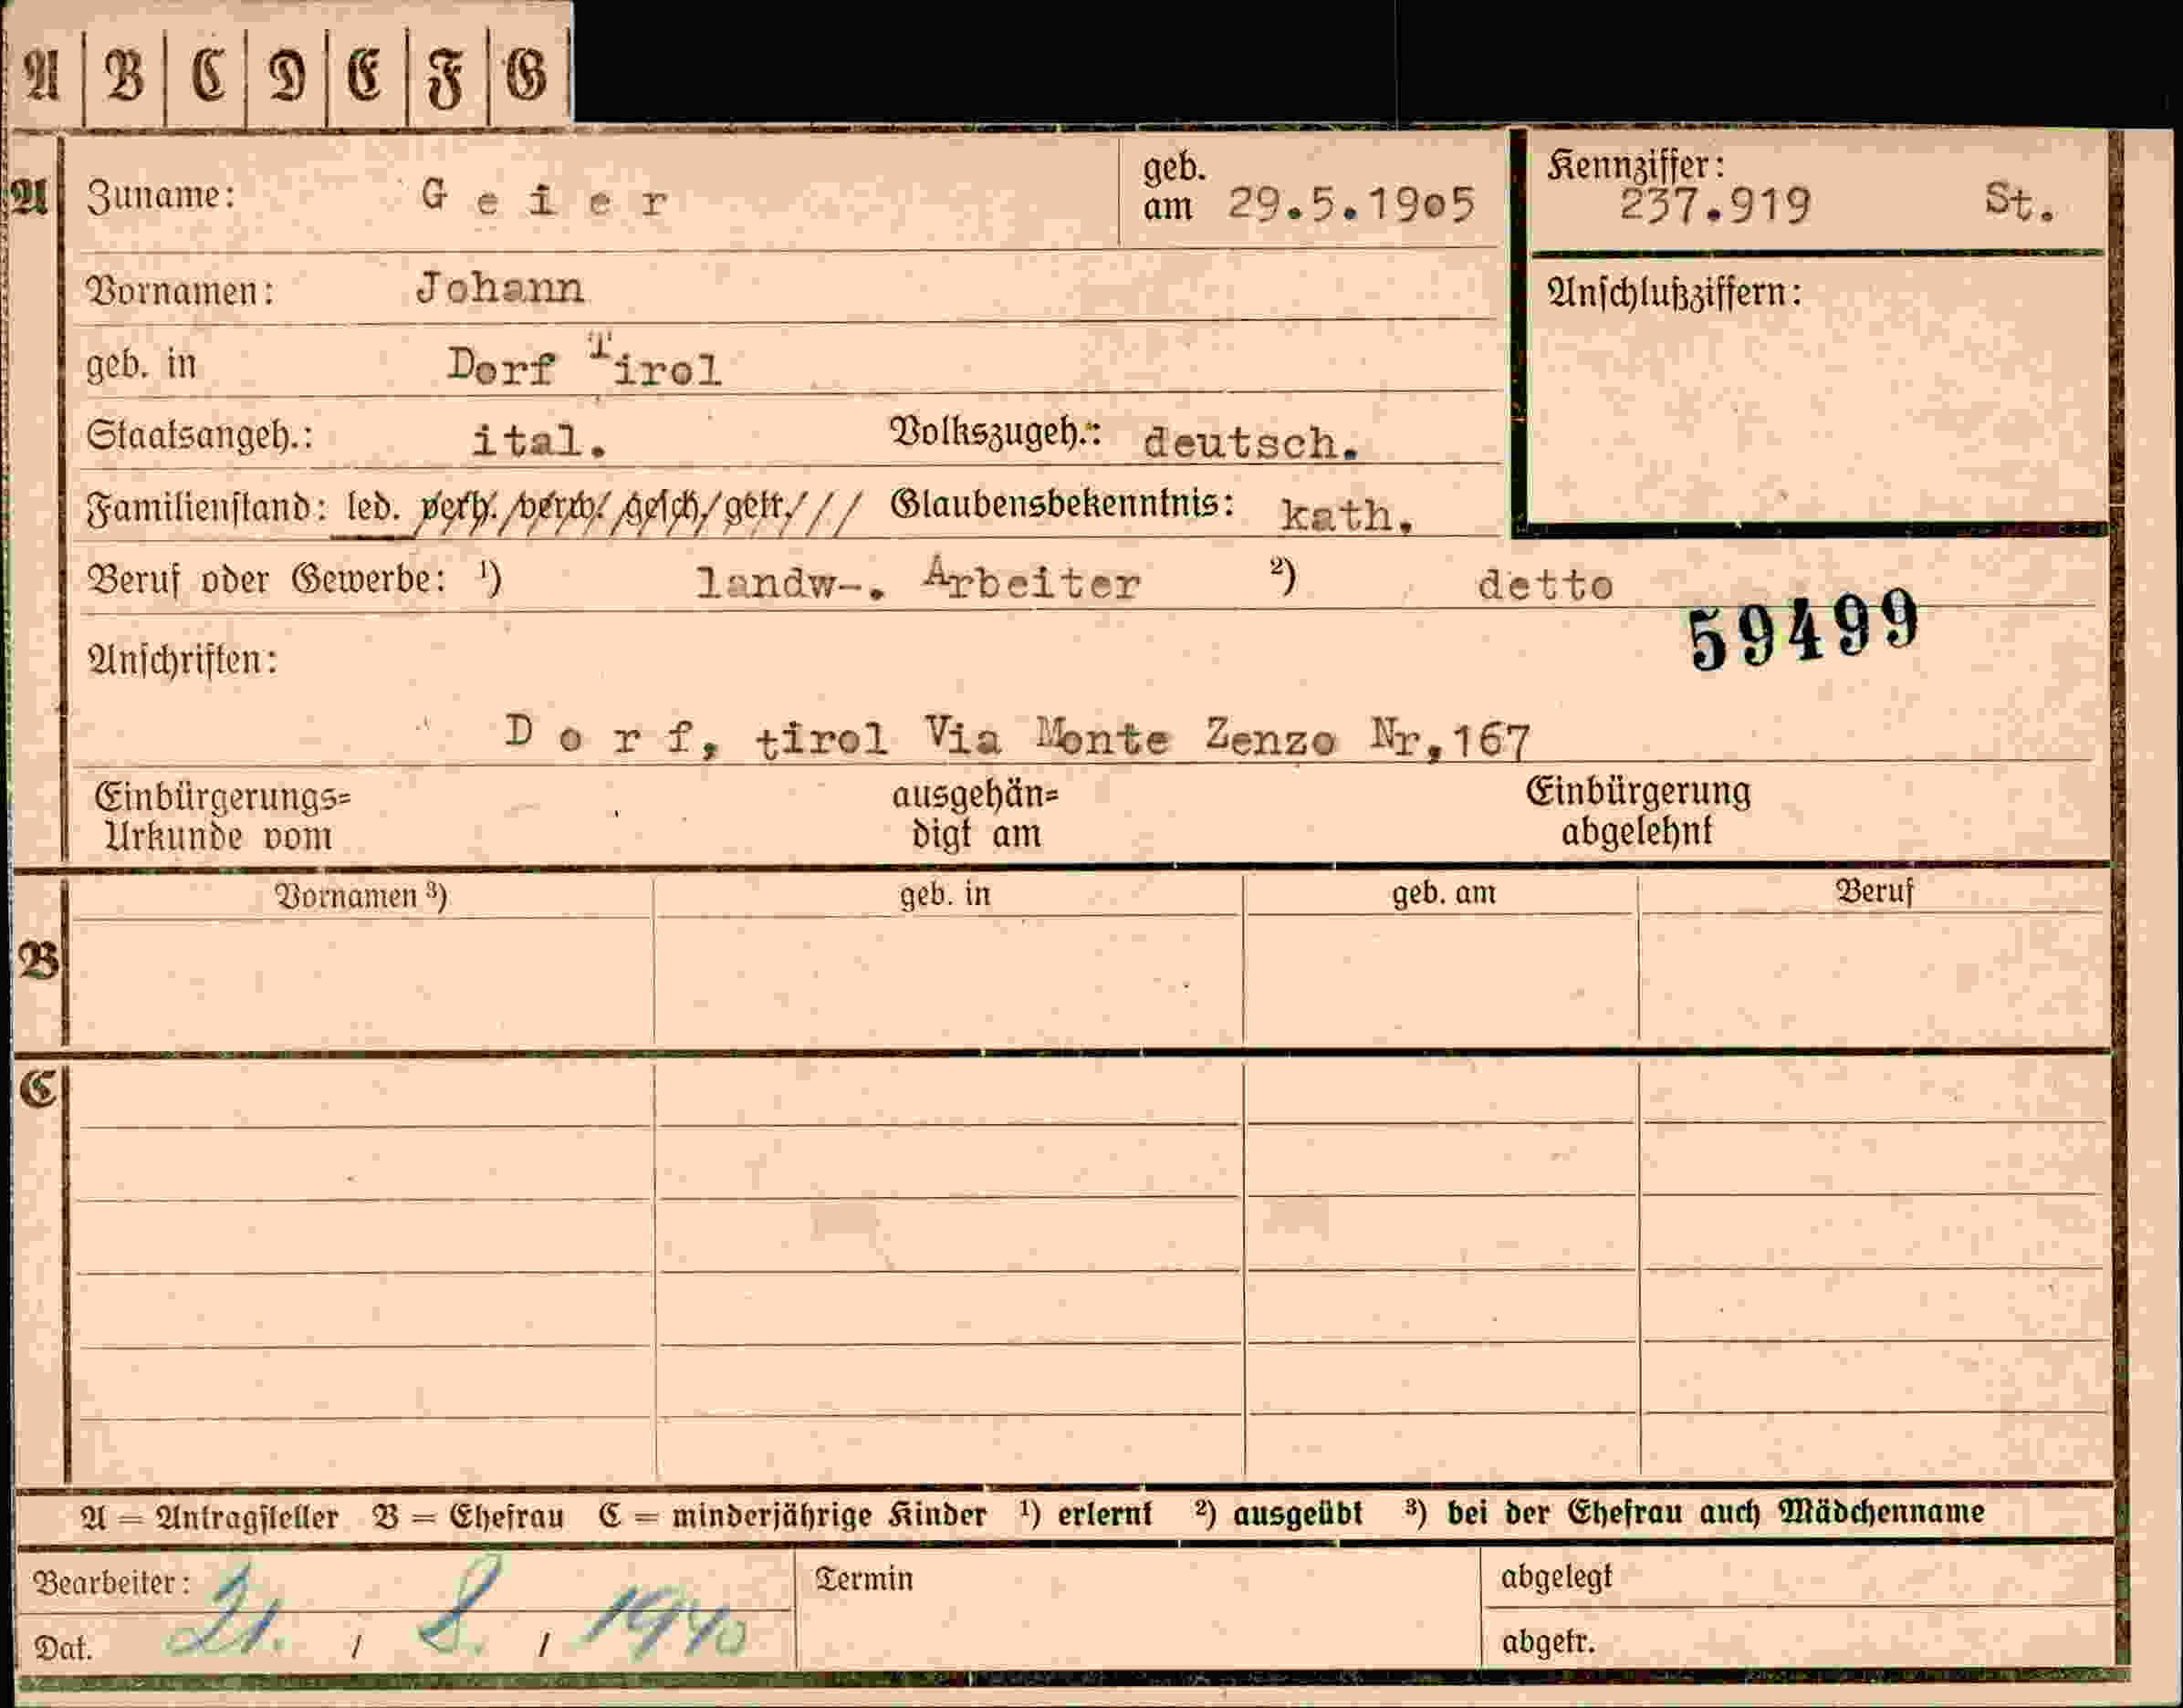 A B C D E F G
A Zuname: Geier geb. am 29.5.19o5 Kennziffer: 237.919 St.
Vornamen: Johann Anschlußziffern:
geb. in Dorf Tirol
Staatsangeh.: ital. Volkszugeh.: deutsch.
Familienstand: led. verh. verw. gesch. getr. /// Glaubensbekenntnis: kath.
Beruf oder Gewerbe: ¹) landw-. Arbeiter ²) detto
59499
Anschriften:
D o r f, tirol Via Monte Zenzo Nr,167
Einbürgerungs= ausgehän= Einbürgerung
Urkunde vom digt am abgelehnt
B Vornamen ³) geb. in geb. am Beruf
C
A = Antragsteller B = Ehefrau C = minderjährige Kinder ¹) erlernt ²) ausgeübt ³) bei der Ehefrau auch Mädchenname
Bearbeiter: Termin abgelegt
Dat. 21. / 8. / 1940 abgetr.